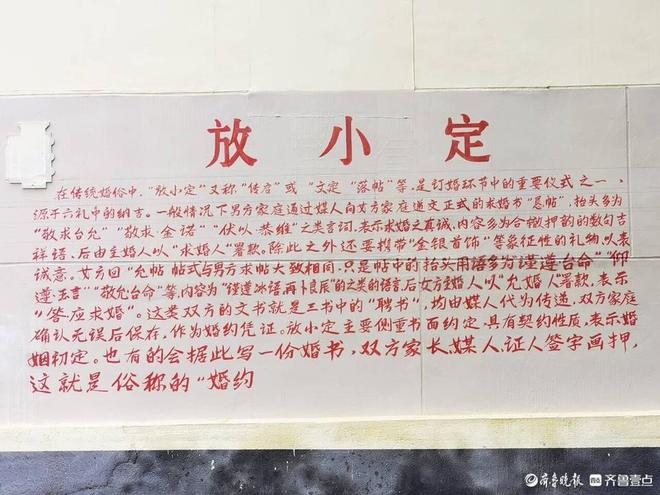 放小定
在传统婚俗中，“放小定”又称“传启”或“文定”“落帖”等，是订婚环节中的重要仪式之一，
源于六礼中的纳吉。一般情况下男方家庭通过媒人向女方家庭递交正式的求婚书“恳帖”，抬头多为
“敬求台允”“敬求金诺”“伏以恭维”之类言词，表示求婚之真诚，内容多为合辙押韵的数句吉
祥语，后由主婚人以“求婚人”署款。除此之外还要携带“金银首饰”等象征性的礼物，以表
诚意。女方回“允帖，帖式与男方求帖大致相同，只是帖中的抬头用语多为“谨遵台命”“仰
遵玉言”“敬允台命”等，内容为“谨遵冰语，再卜良辰”之类的语言，后女方主婚人以“允婚人”署款，表示
“答应求婚”。这类双方的文书就是三书中的“聘书”，均由媒人代为传递，双方家庭
确认无误后保存，作为婚约凭证。放小定主要侧重书面约定，具有契约性质，表示婚
姻初定。也有的会据此写一份婚书，双方家长、媒人、证人签字画押，
这就是俗称的“婚约
齐鲁晚报 齐鲁壹点